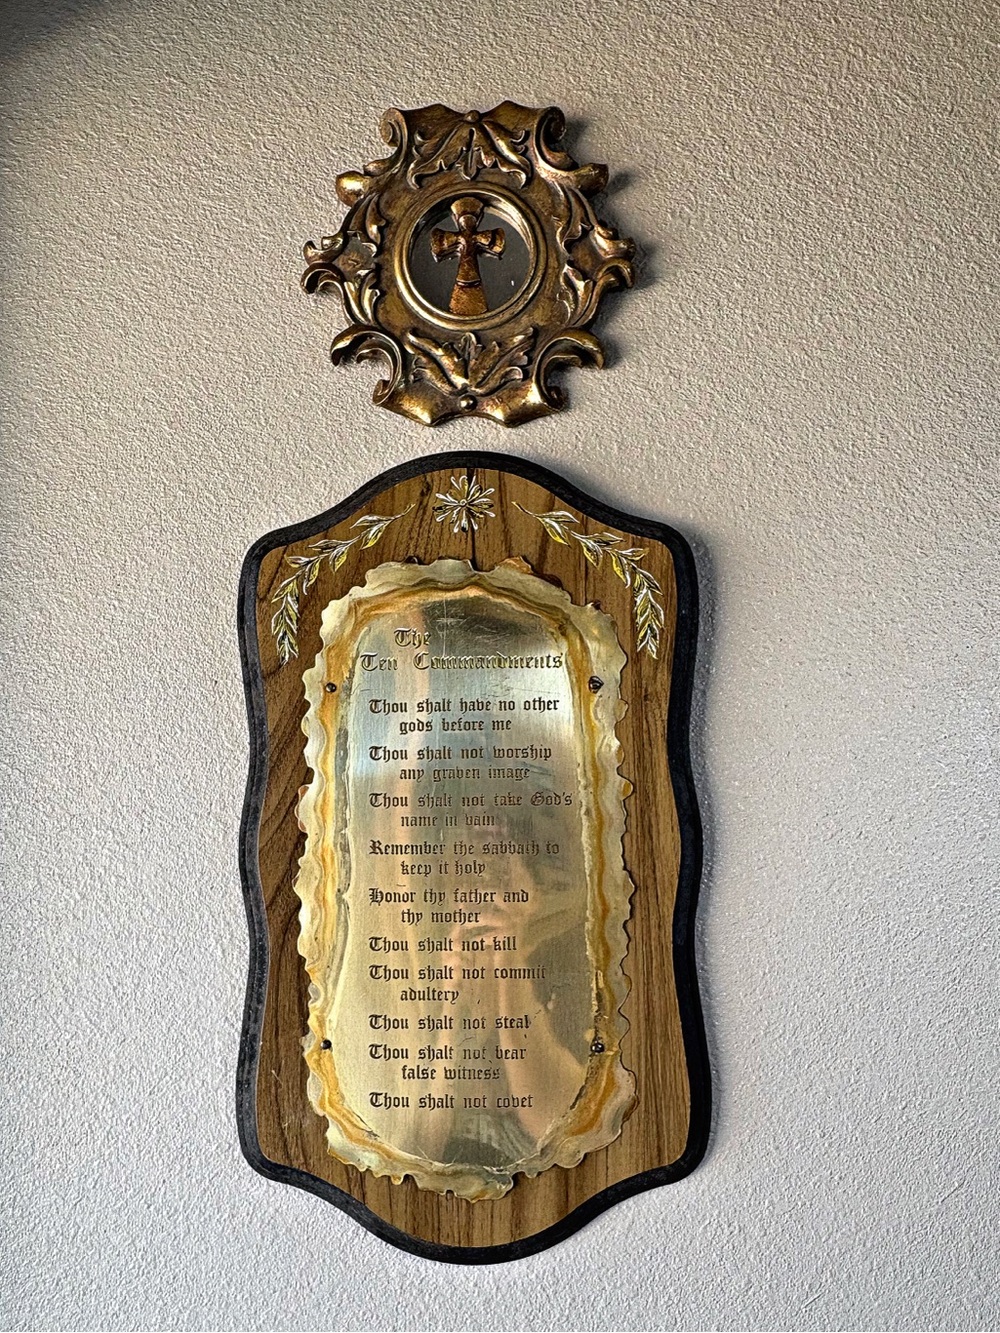 The
Ten Commandments
Thou shalt have no other
gods before me
Thou shalt not worship
any graven image
Thou shalt not take God's
name in vain
Remember the sabbath to
keep it holy
Honor thy father and
thy mother
Thou shalt not kill
Thou shalt not commit
adultery
Thou shalt not steal
Thou shalt not bear
false witness
Thou shalt not covet